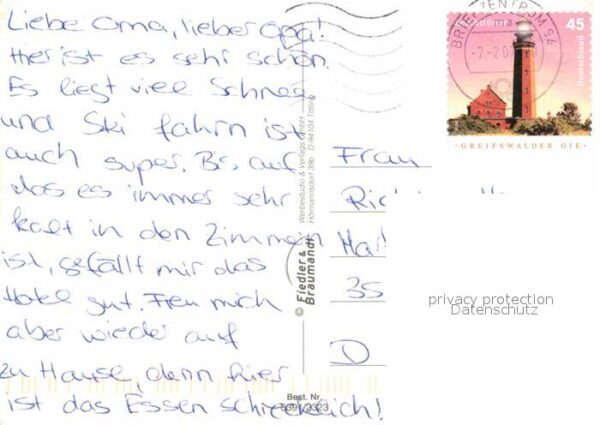 Liebe Oma, lieber Opa!
Hier ist es sehr schön.
Es liegt viel Schnee
und Ski fahrn ist
auch super. Bis auf
das es immer sehr
kalt in den Zimmern
ist, gefällt mir das
Hotel gut. Freu mich
aber wieder auf
zu Hause, denn hier
ist das Essen schrecklich!
Werbestudio & Verlags GmbH
Hörmannsdorf 39b D-94104 Tittling
© Fiedler &
Braumandl
Best. Nr.
BRIEFZENTRUM 94
45
Deutschland
GREIFSWALDER OIE
Frau
35
D
privacy protection
Datenschutz